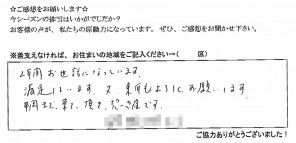 ☆ご感想をお願いします☆
今シーズンの排雪はいかがでしたか?
お客様の声が、私たちの原動力になっています。ぜひ、ご感想をお聞かせ下さい。
※差支えなければ、お住まいの地域をご記入ください→( 区)
2年間お世話になっています。
満足しています。又、来年もよろしくお願いします。
まで、来て頂き、です。
ご協力ありがとうございました!